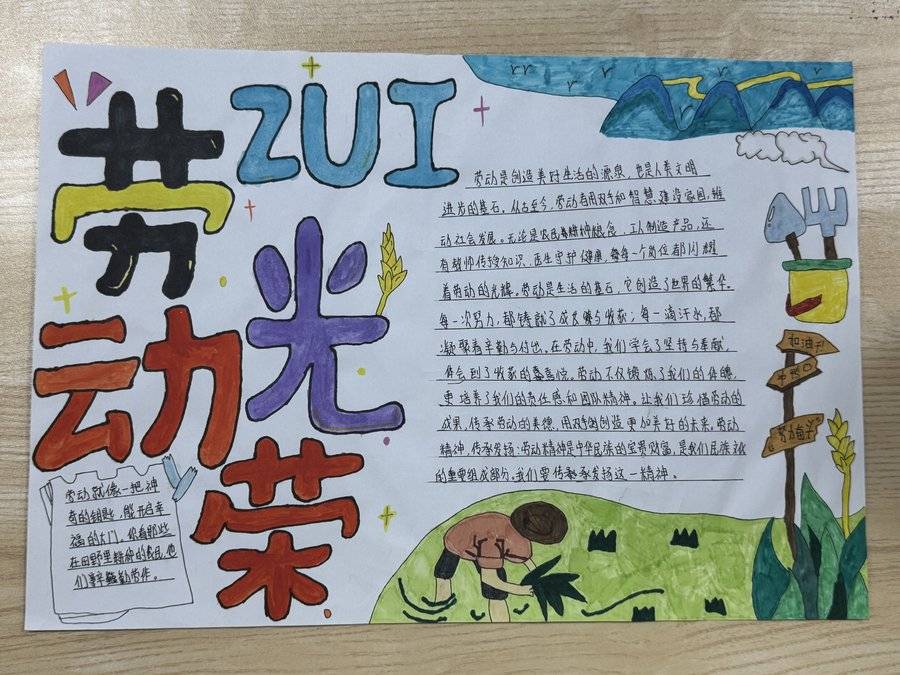 劳动
ZUI
光荣
劳动是创造美好生活的源泉，也是人类文明
进步的基石。从古至今，劳动者用双手和智慧，建设家园，推
动社会发展。无论是农民耕种粮食，工人制造产品，还
有教师传授知识，医生守护健康，每一个岗位都闪耀
着劳动的光辉。劳动是生活的基石，它创造了世界的繁华。
每一次努力，都铸就了成长与收获；每一滴汗水，都
凝聚着辛勤与付出。在劳动中，我们学会了坚持与奉献，
体会到了收获的喜悦。劳动不仅锻炼了我们的体魄，
更培养了我们的责任感和团队精神。让我们珍惜劳动的
成果，传承劳动的美德，用双手创造更加美好的未来。劳动
精神，传承发扬：劳动精神是中华民族的宝贵财富，是我们民族文化
的重要组成部分。我们要传承发扬这一精神。
劳动就像一把神
奇的钥匙，能开启幸
福的大门。你看那些
在田野里耕种的农民，他
们辛勤劳作。
加油！
劳动最光